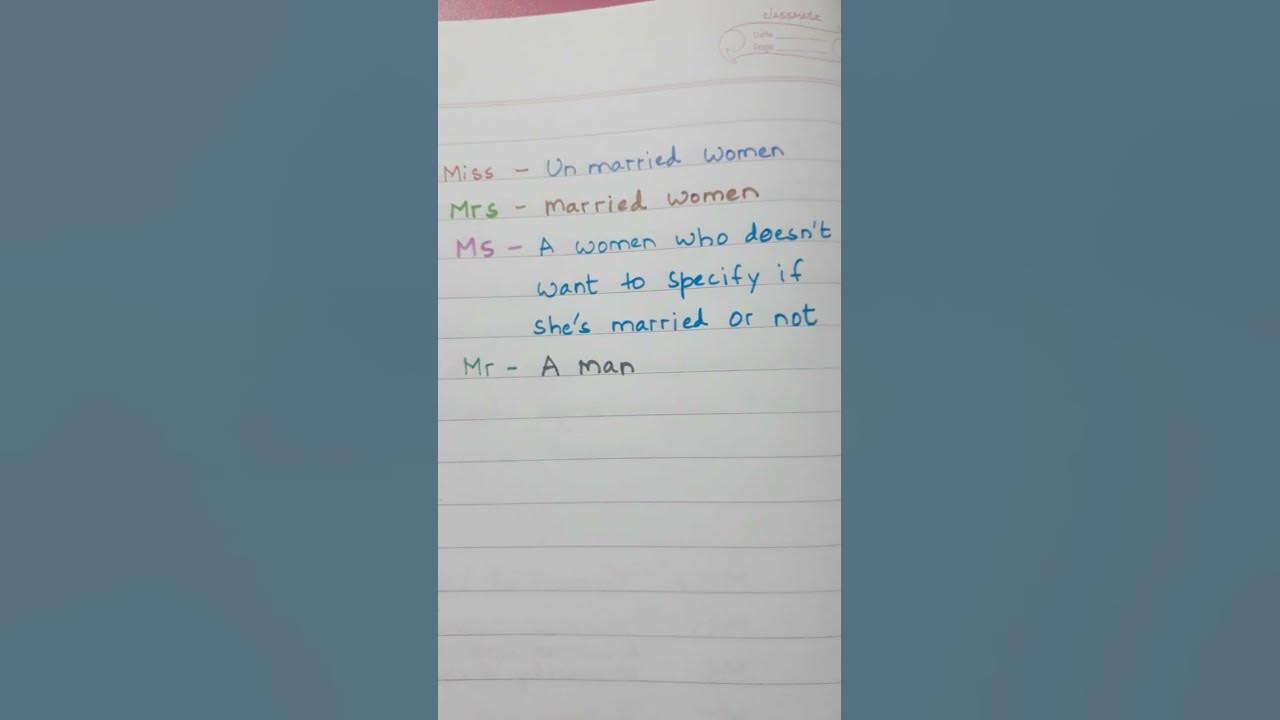 classmate
Date
Page
Miss - Un married women
Mrs - married women
Ms - A women who doesn't
want to specify if
she's married or not
Mr - A man